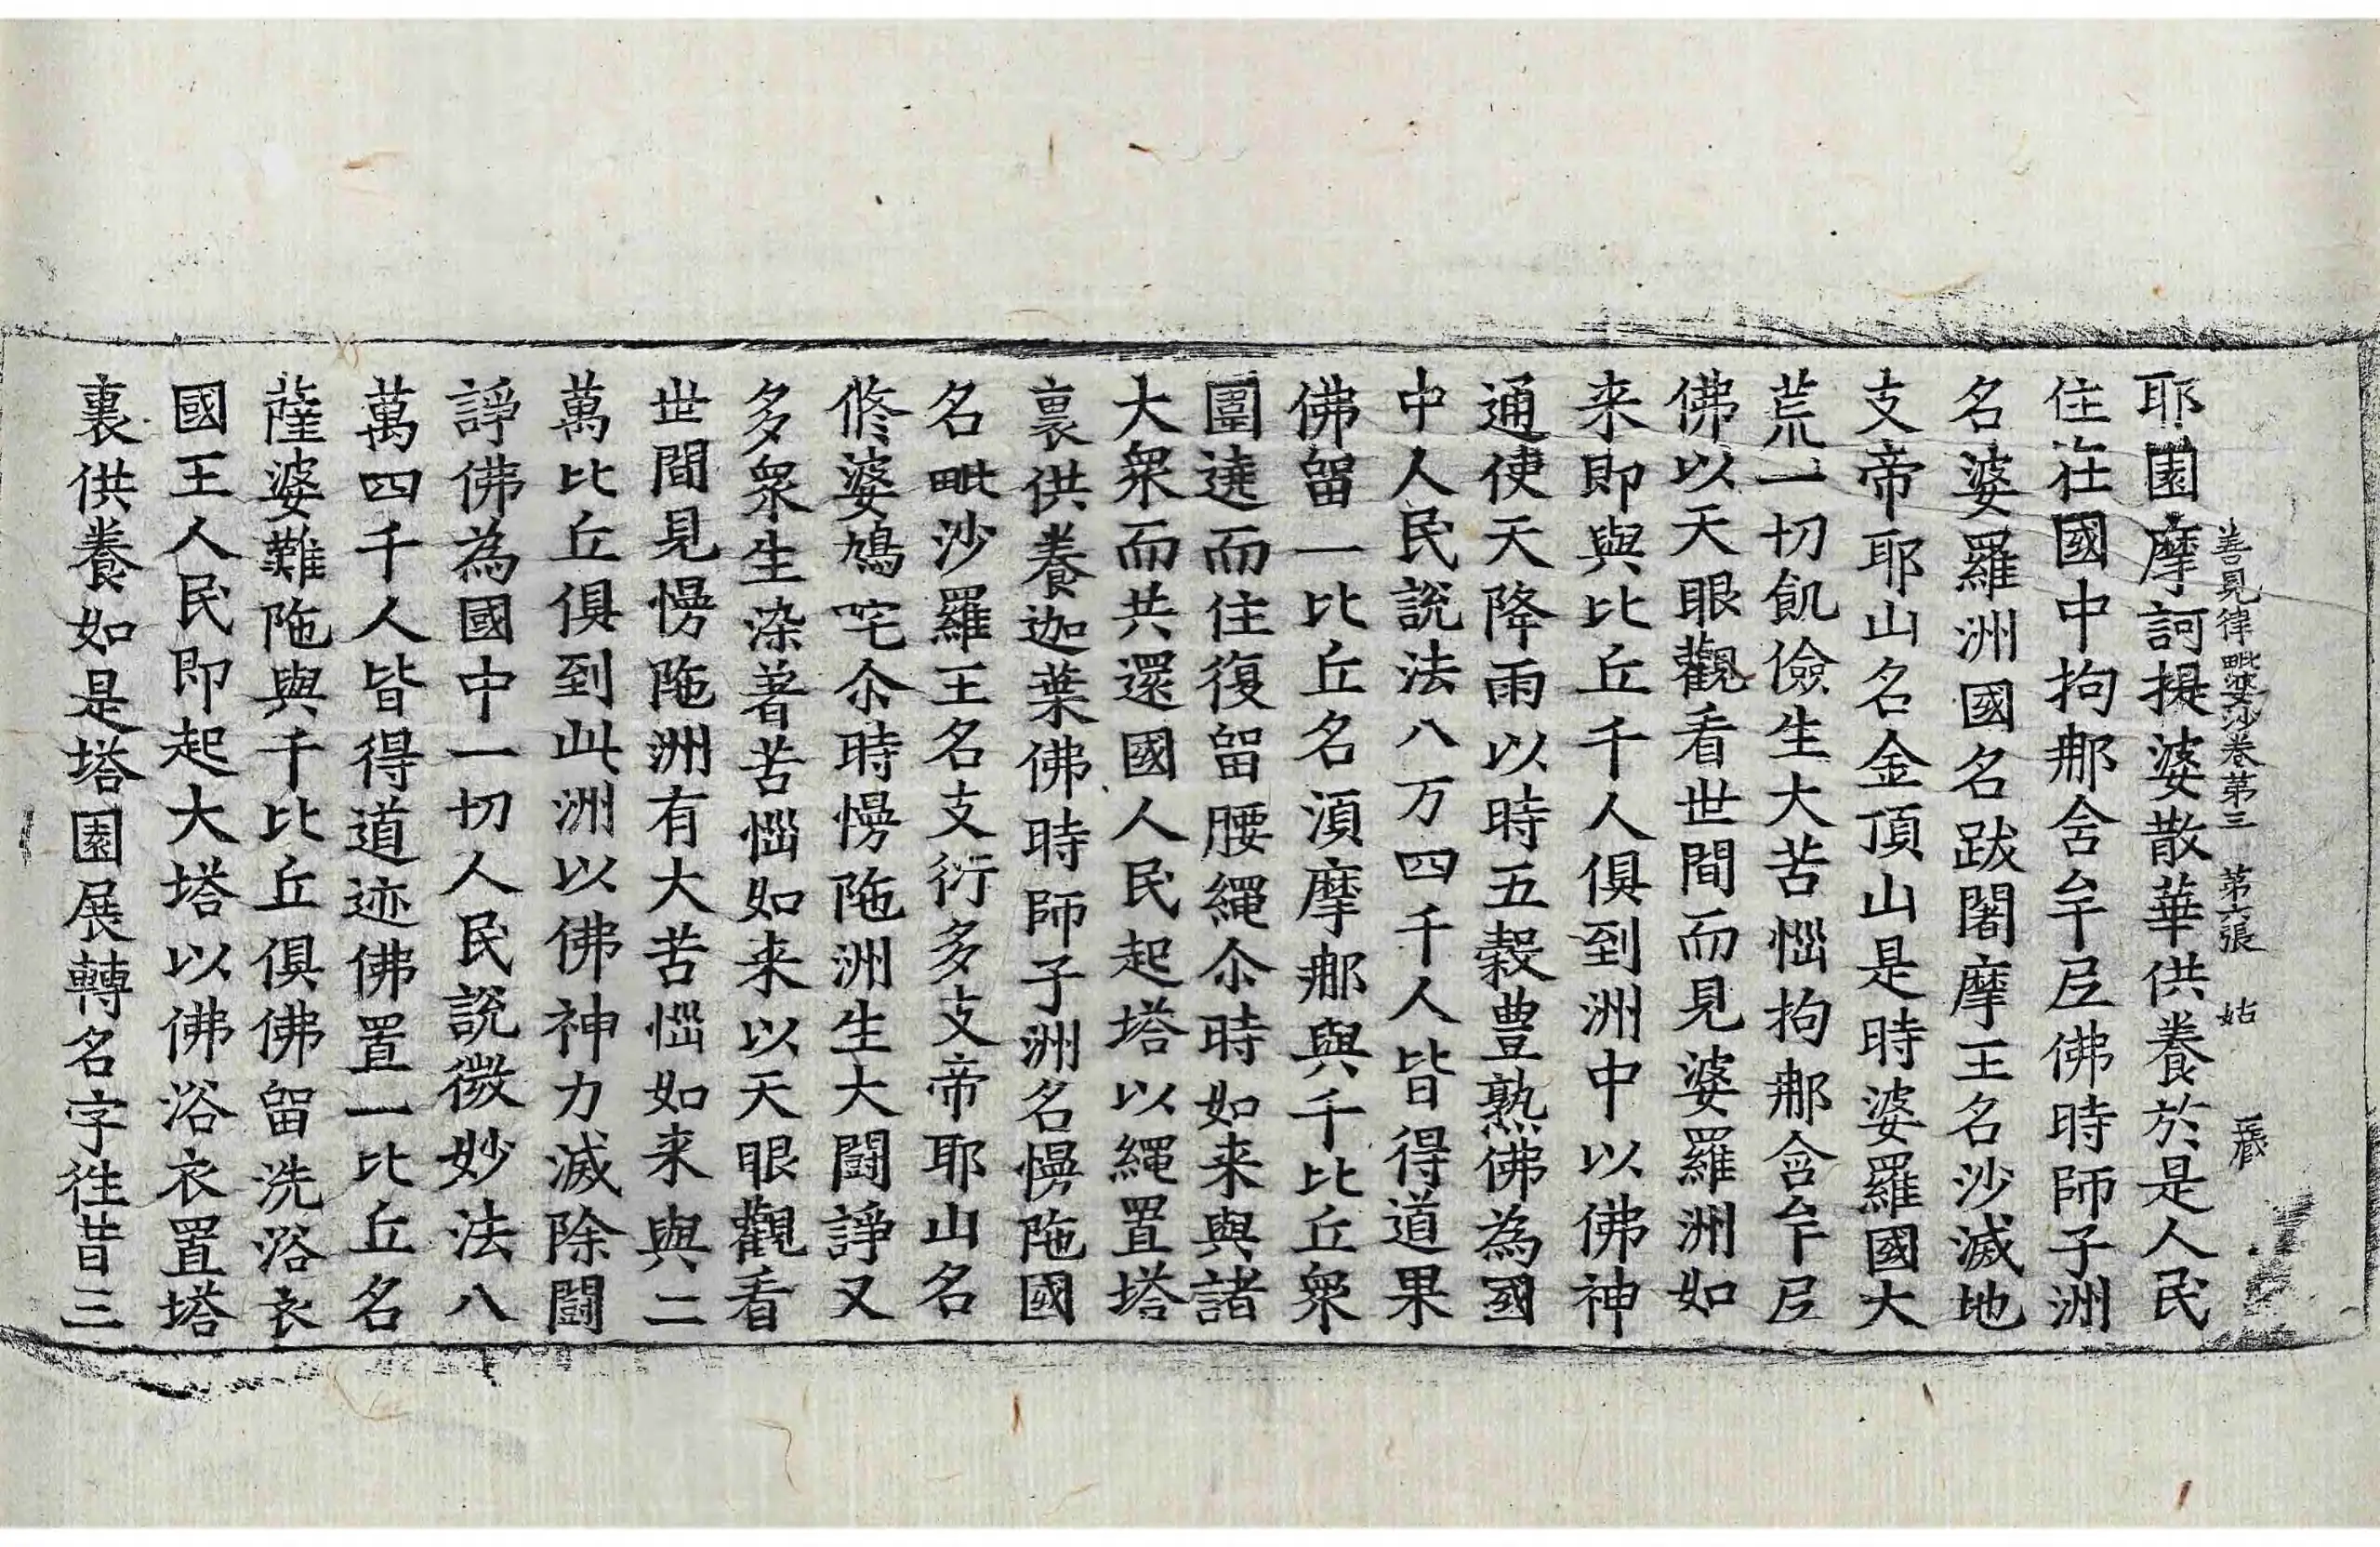 善見律毗婆沙卷第三 第六張 姑
耶園摩訶提婆散華供養於是人民
住在國中拘𨚗含牟𡰱佛時師子洲
名婆羅洲國名跋闍摩王名沙滅地
支帝耶山名金頂山是時婆羅國大
荒一切飢儉生大苦惱拘𨚗含牟𡰱
佛以天眼觀看世間而見婆羅洲如
来即與比丘千人俱到洲中以佛神
通使天降雨以時五穀豊熟佛為國
中人民說法八万四千人皆得道果
佛留一比丘名湏摩𨚗與千比丘衆
圍遶而住復留腰繩尒時如来與諸
大衆而共還國人民起塔以繩置塔
裏供養迦葉佛時師子洲名慢陁國
名毗沙羅王名支衍多支帝耶山名
修婆鳩咤尒時慢陁洲生大闘諍又
多衆生染著苦惱如来以天眼觀看
世間見慢陁洲有大苦惱如来與二
萬比丘俱到此洲以佛神力滅除闘
諍佛為國中一切人民說微妙法八
萬四千人皆得道迹佛置一比丘名
薩婆難陁與千比丘俱佛留洗浴衣
國王人民即起大塔以佛浴衣置塔
裏供養如是塔園展轉名字徃昔三